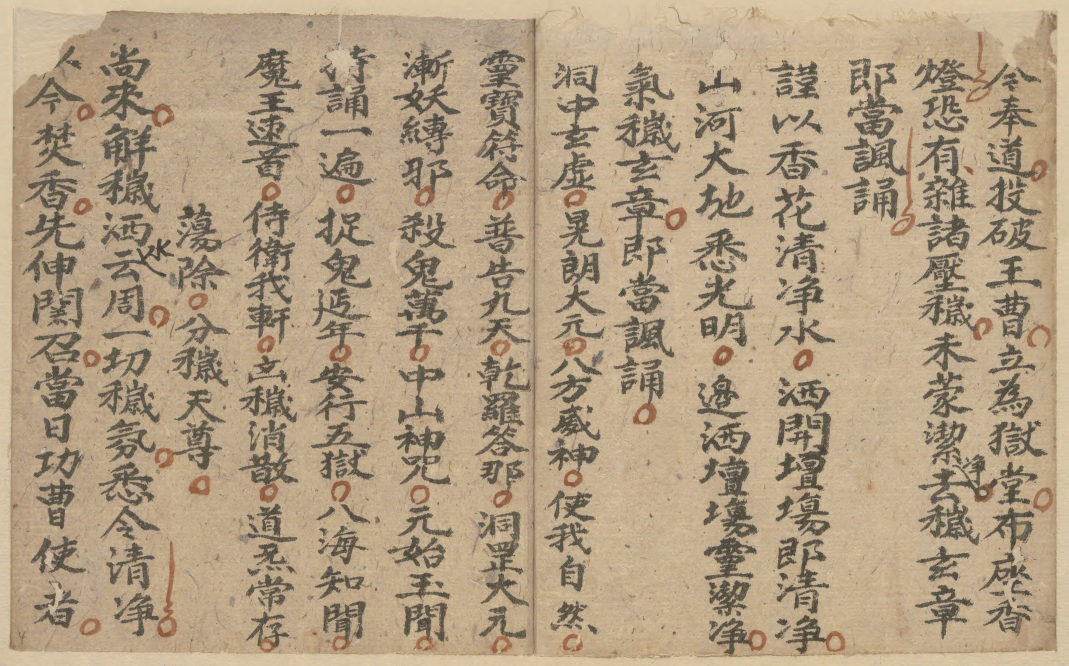 今奉道投破王曹立為獄堂布㷔香
燈恐有雜諸壓穢未蒙潔净去穢玄章
即當諷誦
謹以香花清净水洒開壇場即清净
山河大地悉光明邊洒壇塲靈潔净
氣穢玄章即當諷誦
洞中玄虚晃朗大元八方威神使我自然
靈寶符命普告九天乾羅答那洞罡大元
漸妖縳邪殺鬼萬千中山神咒元始玉聞
持誦一遍捉鬼延年安行五獄八海知聞
魔王速首侍衛我軒凶穢消散道炁常存
蕩除分穢天尊
尚來解穢洒水云周一切穢氛悉令清净
以今焚香先伸關召當日功曹使者